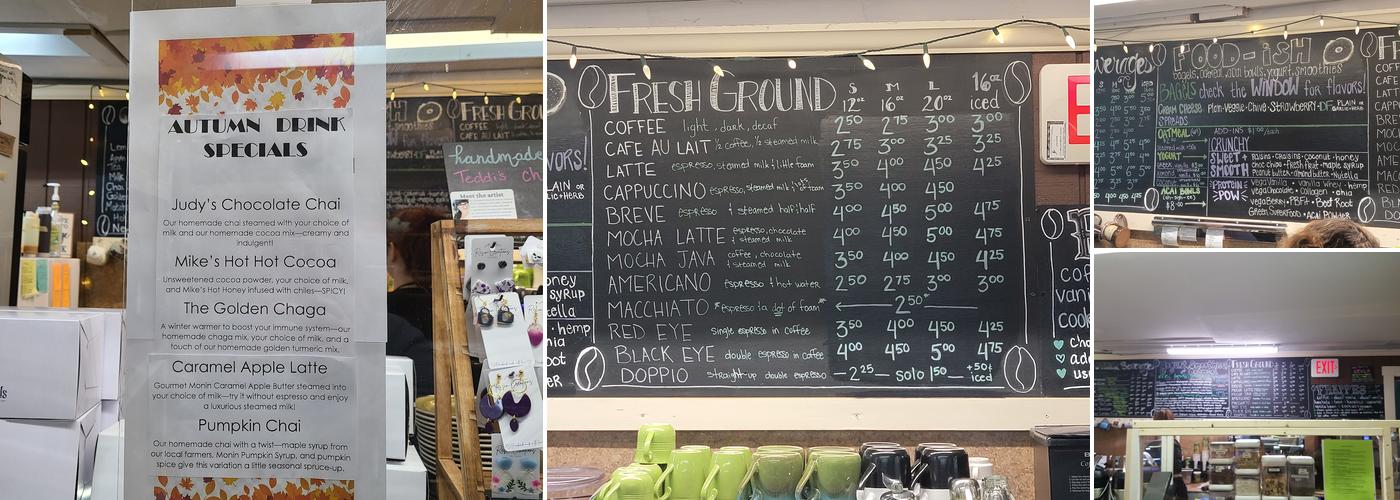 AUTUMN DRINK
SPECIALS
Judy's Chocolate Chai
Our homemade chai steamed with your choice of
milk and our homemade cocoa mix—creamy and
indulgent!
Mike's Hot Hot Cocoa
Unsweetened cocoa powder, your choice of milk,
and Mike's Hot Honey infused with chiles—SPICY!
The Golden Chaga
A winter warmer to boost your immune system—our
homemade chaga mix, your choice of milk, and a
touch of our homemade golden turmeric mix.
Caramel Apple Latte
Gourmet Monin Caramel Apple Butter steamed into
your choice of milk—try it without espresso and enjoy
a luxurious steamed milk!
Pumpkin Chai
Our homemade chai with a twist—maple syrup from
our local farmers, Monin Pumpkin Syrup, and pumpkin
spice give this variation a little seasonal spruce-up.
handmade
Teddi's
Meet the artist
FRESH GROUND
S M L 16oz
12oz 16oz 20oz iced
COFFEE light, dark, decaf 2.50 2.75 3.00 3.00
CAFE AU LAIT ½ coffee, ½ steamed milk 2.75 3.00 3.25 3.25
LATTE espresso, steamed milk & little foam 3.50 4.00 4.50 4.25
CAPPUCCINO espresso, steamed milk & lots of foam 3.50 4.00 4.50
BREVE espresso & steamed half & half 4.00 4.50 5.00 4.75
MOCHA LATTE espresso, chocolate & steamed milk 4.00 4.50 5.00 4.75
MOCHA JAVA coffee, chocolate & steamed milk 3.50 4.00 4.50 4.25
AMERICANO espresso & hot water 2.50 2.75 3.00 3.00
MACCHIATO *espresso w/ a dot of foam* 2.50
RED EYE single espresso in coffee 3.50 4.00 4.50 4.25
BLACK EYE double espresso in coffee 4.00 4.50 5.00 4.75
DOPPIO straight-up double espresso —2.25— solo 1.50— +50¢ iced
FOOD-ISH
bagels, oatmeal, acai bowls, yogurt, smoothies
BAGELS check the WINDOW for flavors!
CREAM CHEESE Plain·Veggie·Chive·STRAWBERRY·DF PLAIN OR HERB
SPREADS
OATMEAL
YOGURT
ACAI BOWLS
$8.00
ADD-INS $1.00/each
CRUNCHY
SWEET + SMOOTH
raisins·craisins·coconut·honey
choc chips·fresh fruit·maple syrup
Peanut butter·almond butter·Nutella
PROTEIN + POW
vega Vanilla·vanilla whey·hemp
vega Chocolate·Collagen·chia
vega Berry·PBFit·Beet Root
Green Superfood·ACAI POWDER
FRESH GROUND
EXIT
FRAPPES